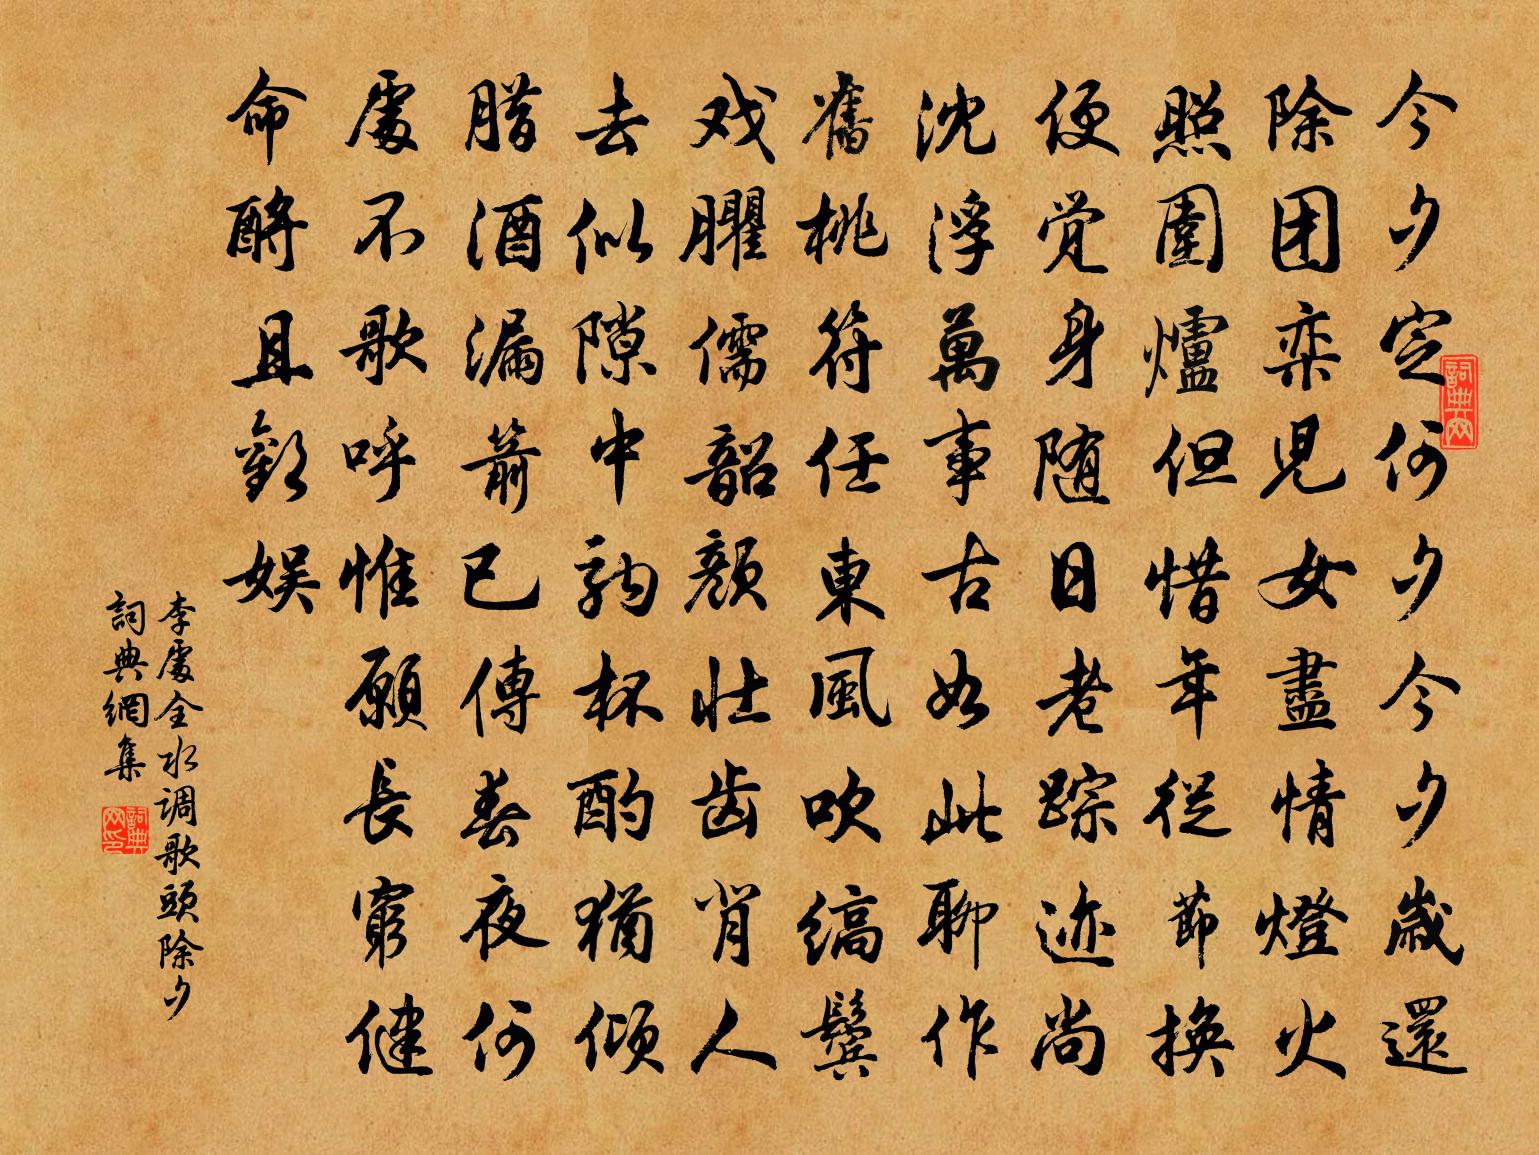 今夕定何夕今夕歲還
除团栾兒女盡情燈火
照圍爐但惜年從節換
便觉身随日老踪迹尚
沈浮萬事古如此聊作
舊桃符任東風吹縞鬢
戏臞儒韶颜壮齿背人
去似隙中驹杯酌猶傾
腊酒漏箭已傳春夜何
處不歌呼惟願長窮健
命酹且歡娱
李處全水调歌頭除夕
詞典網集
詞典网
詞典网印